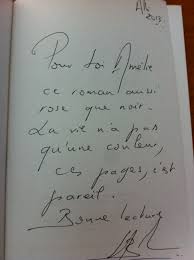 2013.
Pour toi Amélie
ce roman aussi
rose que noir.
La vie n'a pas
qu'une couleur,
ces pages, c'est
pareil.
Bonne lecture